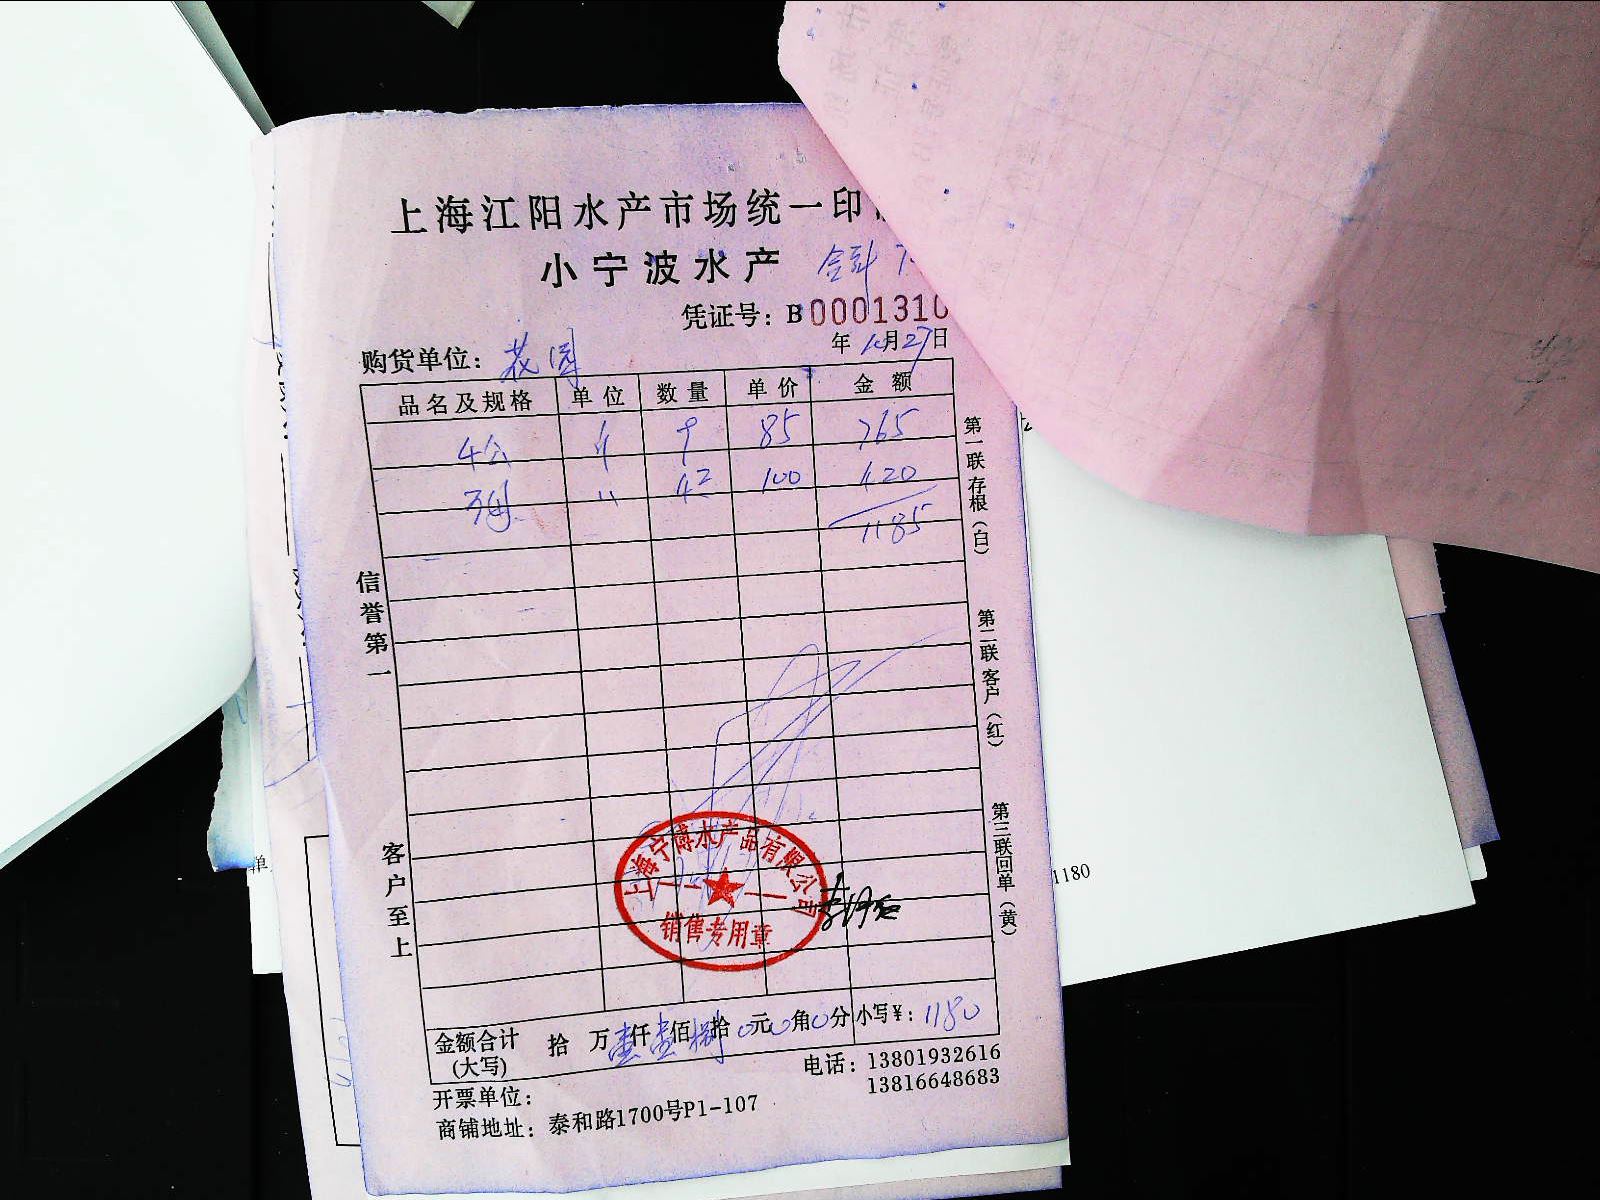 上海江阳水产市场统一印
小宁波水产
凭证号：B0001310
购货单位：花园
年10月27日
品名及规格 单位 数量 单价 金额
4公 斤 9 85 765
4母 〃 4.2 100 420
1185
信誉第一
客户至上
第一联存根（白）
第二联客户（红）
第三联回单（黄）
上海宁博水产品有限公司
销售专用章
金额合计（大写） 拾 万壹仟壹佰捌拾0元0角0分 小写¥：1180
电话：13801932616
13816648683
开票单位：
商铺地址：泰和路1700号P1-107
单
1180